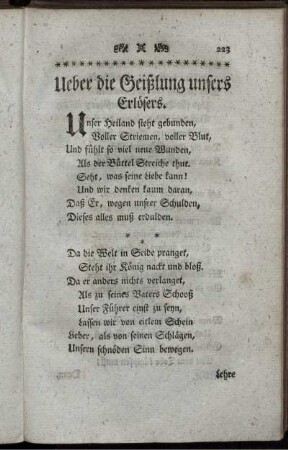 223
Ueber die Geißlung unsers
Erlösers.
Unser Heiland steht gebunden,
Voller Striemen, voller Blut,
Und fühlt so viel neue Wunden,
Als der Büttel Streiche thut.
Seht, was seine Liebe kann!
Und wir denken kaum daran,
Daß Er, wegen unsrer Schulden,
Dieses alles muß erdulden.
Da die Welt in Seide pranget,
Steht ihr König nackt und bloß.
Da er anders nichts verlanget,
Als zu seines Vaters Schooß
Unser Führer einst zu seyn,
Lassen wir von eitlem Schein
Lieber, als von seinen Schlägen,
Unsern schnöden Sinn bewegen.
Lehre